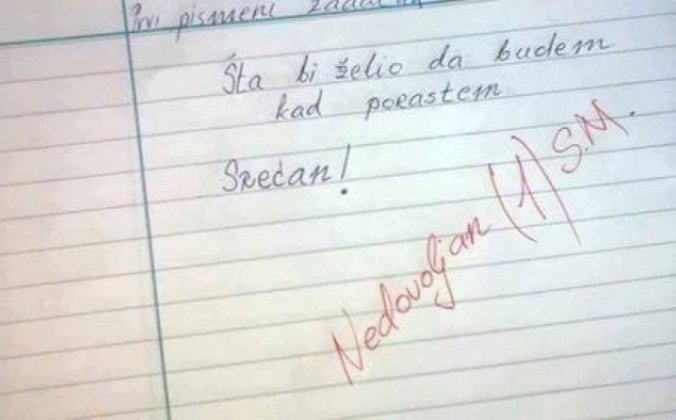 Prvi pismeni zadatak
Šta bi želio da budem
kad porastem
Srećan!
Nedovoljan (1) S.M.